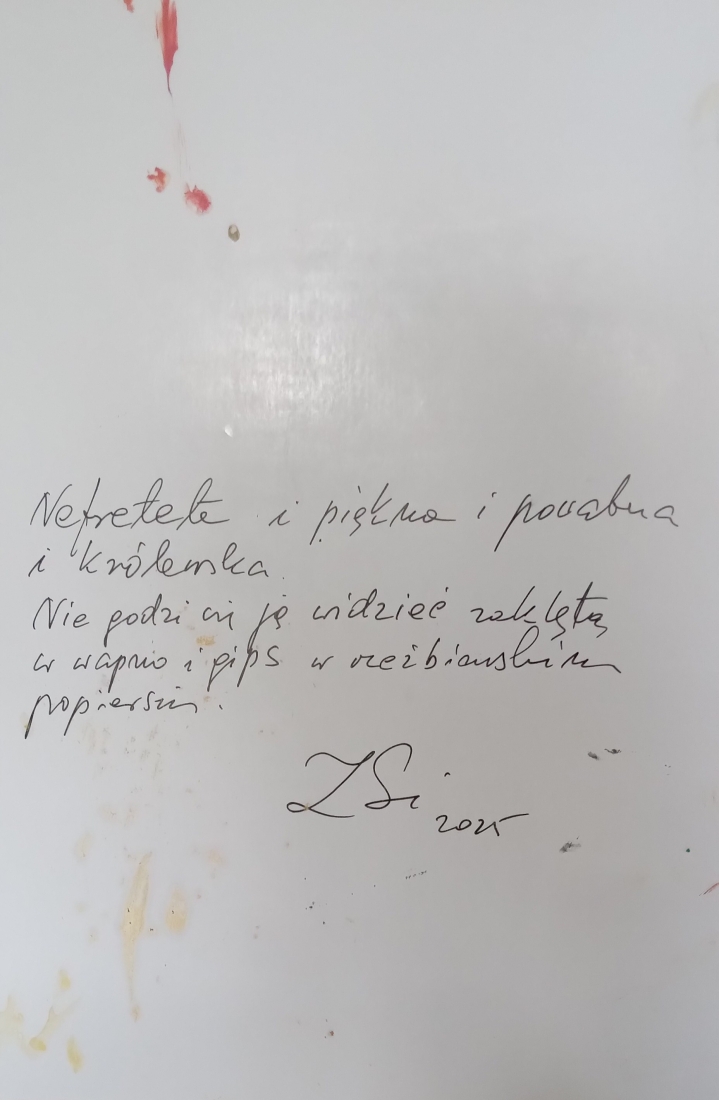 Nefretete i piękna i powabna
i królewska.
Nie godzi się ją widzieć zaklętą
w wapno i gips w rzeźbiarskim
popiersiu.
ZSi
2025